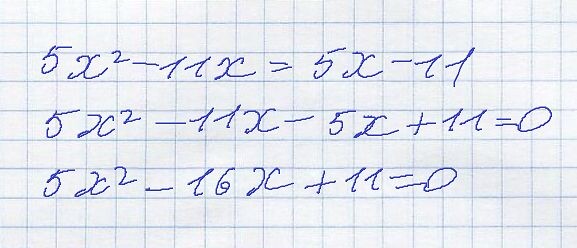 5x² - 11x = 5x - 11
5x² - 11x - 5x + 11 = 0
5x² - 16x + 11 = 0